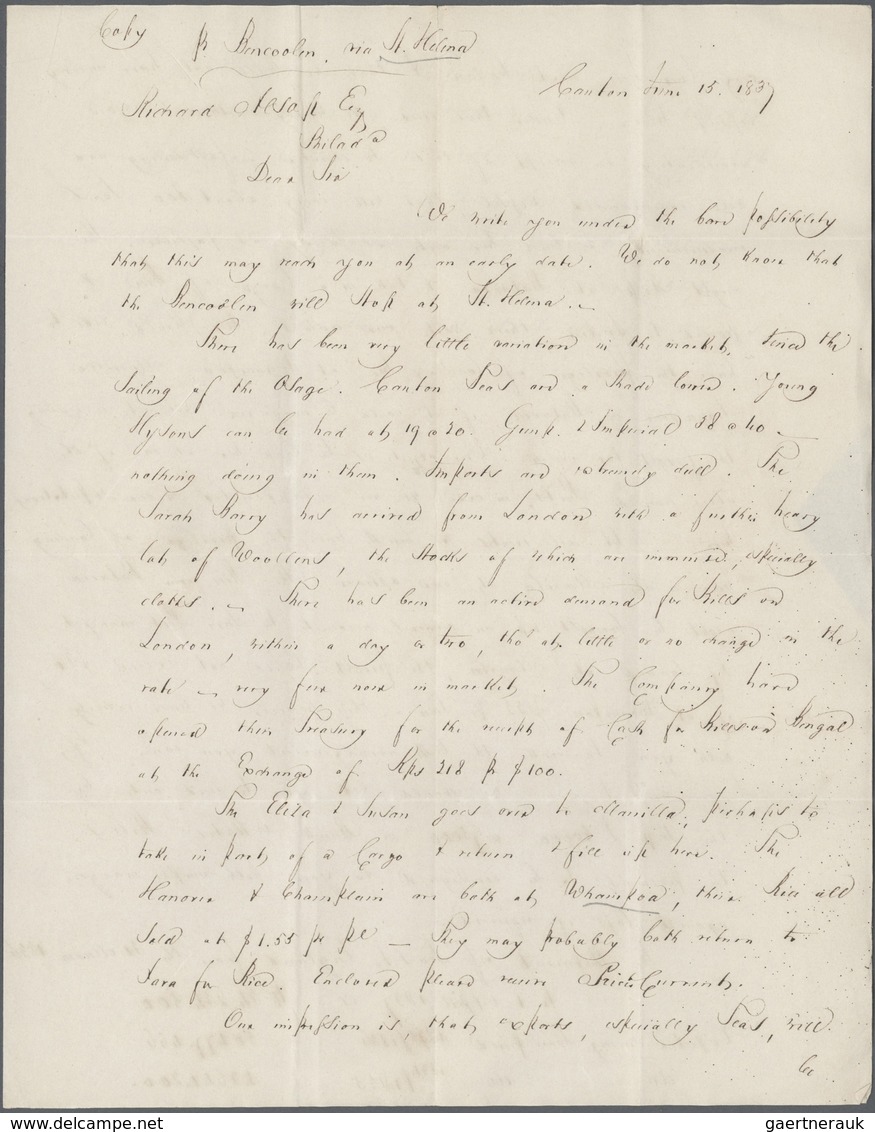 Copy
pr Bencoolen, via St. Helena
Canton June 15. 1837
Richard Alsop Esq
Philada
Dear Sir
We write you under the bare possibility
that this may reach you at an early date. We do not know that
the Bencoolen will stop at St. Helena. –
There has been very little variation in the market, since the
sailing of the Osage. Canton Teas are a shade lower. Young
Hysons can be had at 19 a 20. Gunp. & Imperial 38 a 40 –
nothing doing in them. Imports are extremely dull. The
Sarah Barry has arrived from London with a further heavy
lot of Woollens, the stocks of which are immense, especially
cloths. – There has been an active demand for Bills on
London, within a day or two, tho' at little or no change in the
rate – very few now in market. The Company have
opened their Treasury for the receipt of Cash for Bills on Bengal
at the Exchange of Rps 218 pr $100.
The Eliza & Susan goes over to Manilla, perhaps to
take in part of a Cargo & return & fill up here. The
Hanover & Champlain are both at Whampoa, their Rice all
sold at $1.55 pr pl – They may probably both return to
Java for Rice. Enclosed please receive Price Current.
Our impression is, that exports, especially Teas, will
be
gaertnerauk